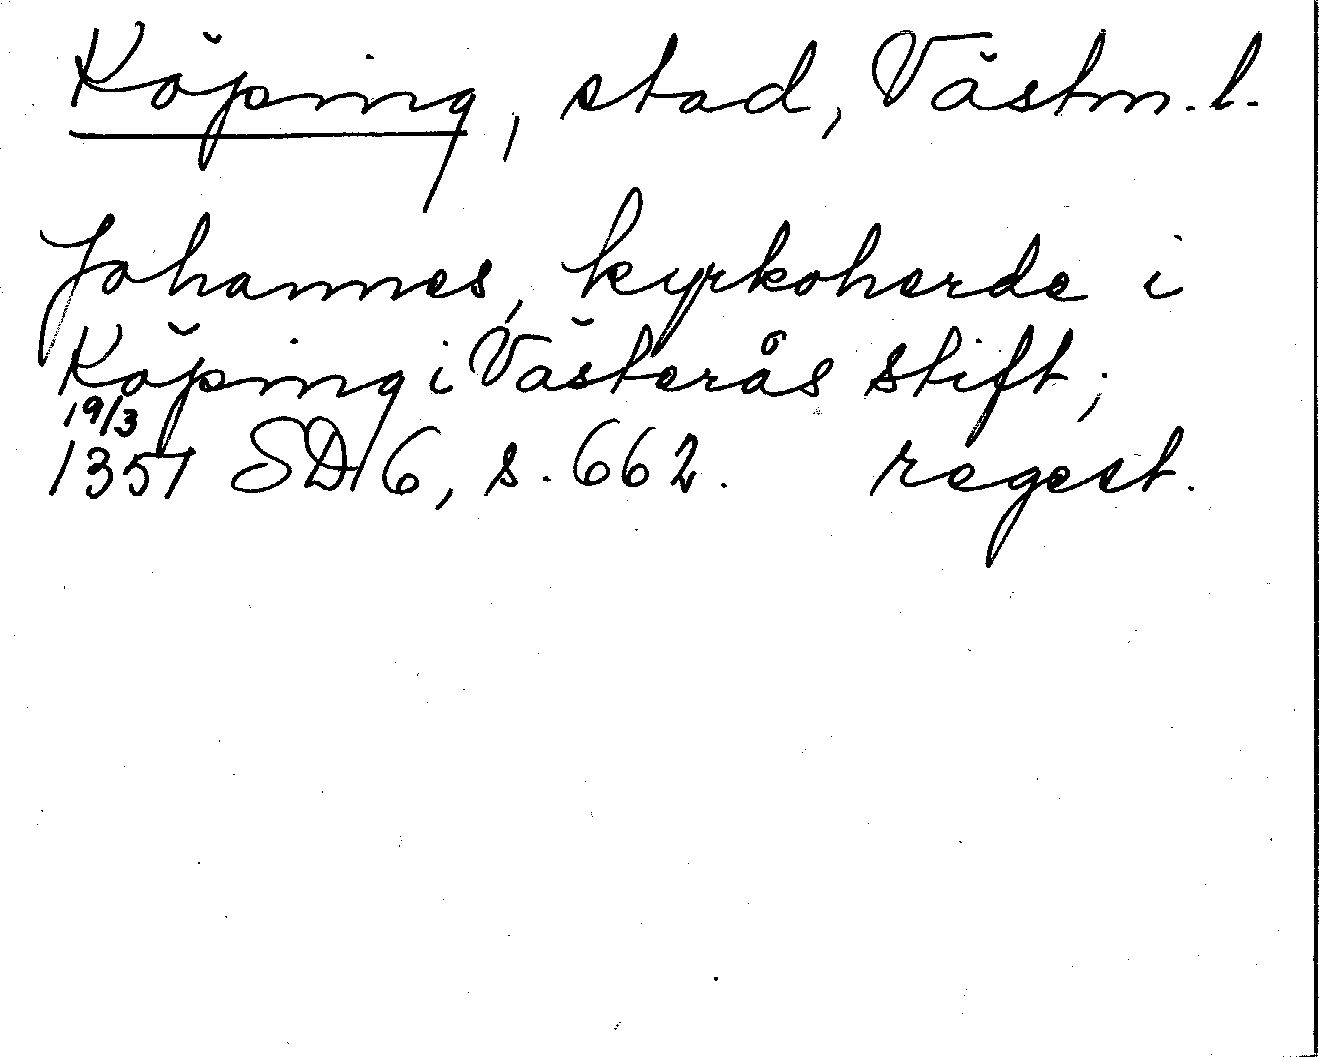 Köping, stad, Västm. l.
Johannes, kyrkoherde i
Köping i Västerås stift;
19/3
1351 SD 6, s. 662. regest.